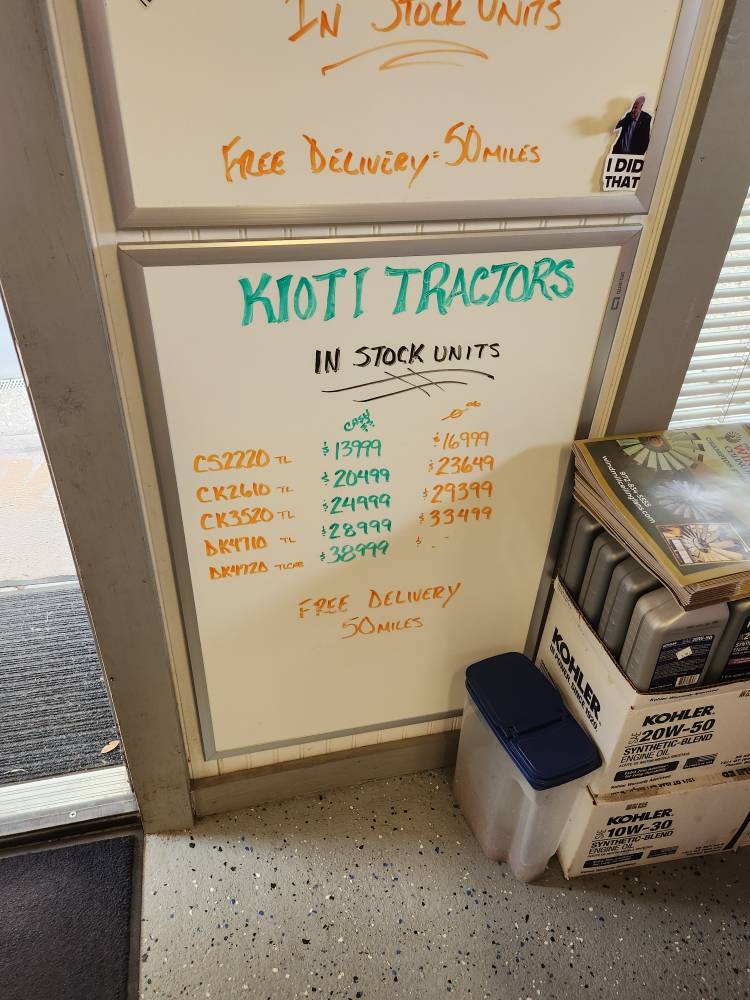 IN STOCK UNITS
FREE DELIVERY: 50 MILES
I DID
THAT
KIOTI TRACTORS
IN STOCK UNITS
CASH
CS2220 TL $13999 $16999
CK2610 TL $20499 $23649
CK3520 TL $24999 $29399
DK4710 TL $28999 $33499
DK4720 TLCAB $38999 $ -
FREE DELIVERY
50 MILES
windmillceilingfans.com
KOHLER
IN POWER SINCE 1920
KOHLER
SAE 20W-50
SYNTHETIC-BLEND
ENGINE OIL
KOHLER
SAE 10W-30
SYNTHETIC-BLEND
ENGINE OIL